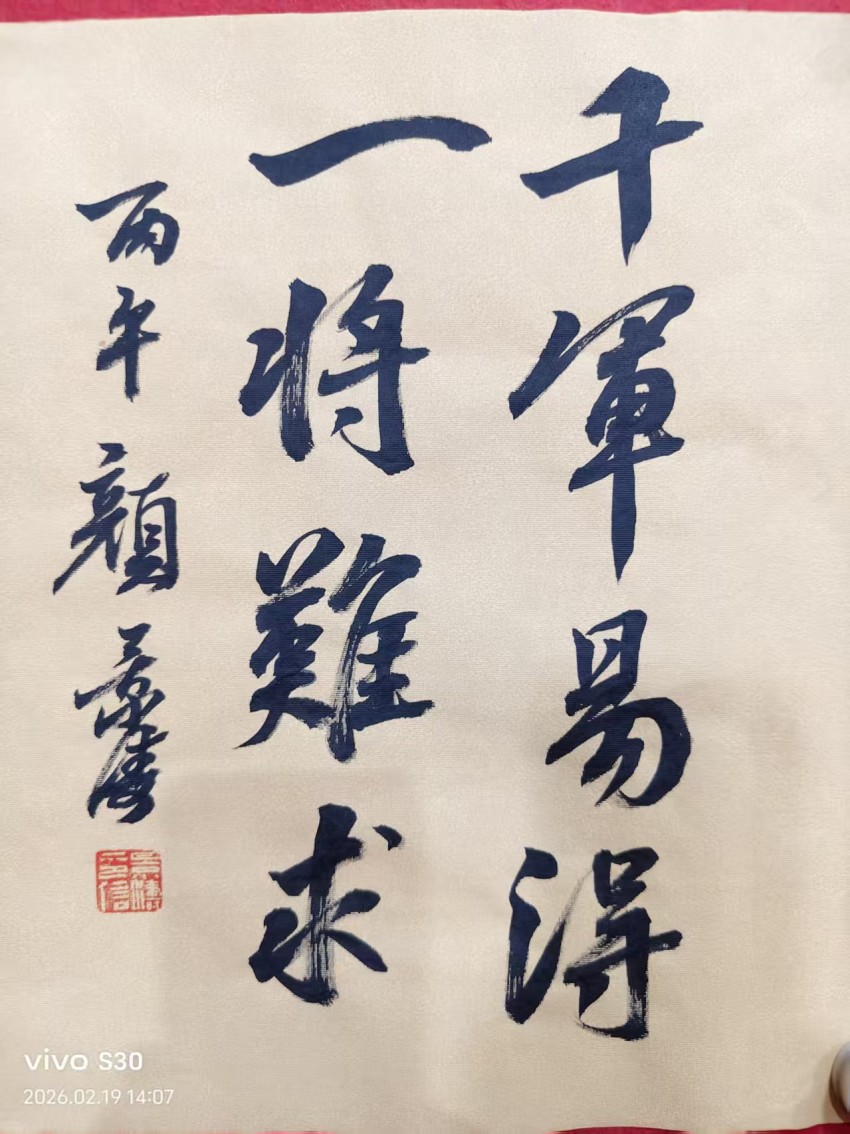 千軍易得
一将難求
丙午 顏景
vivo S30
2026.02.19 14:07